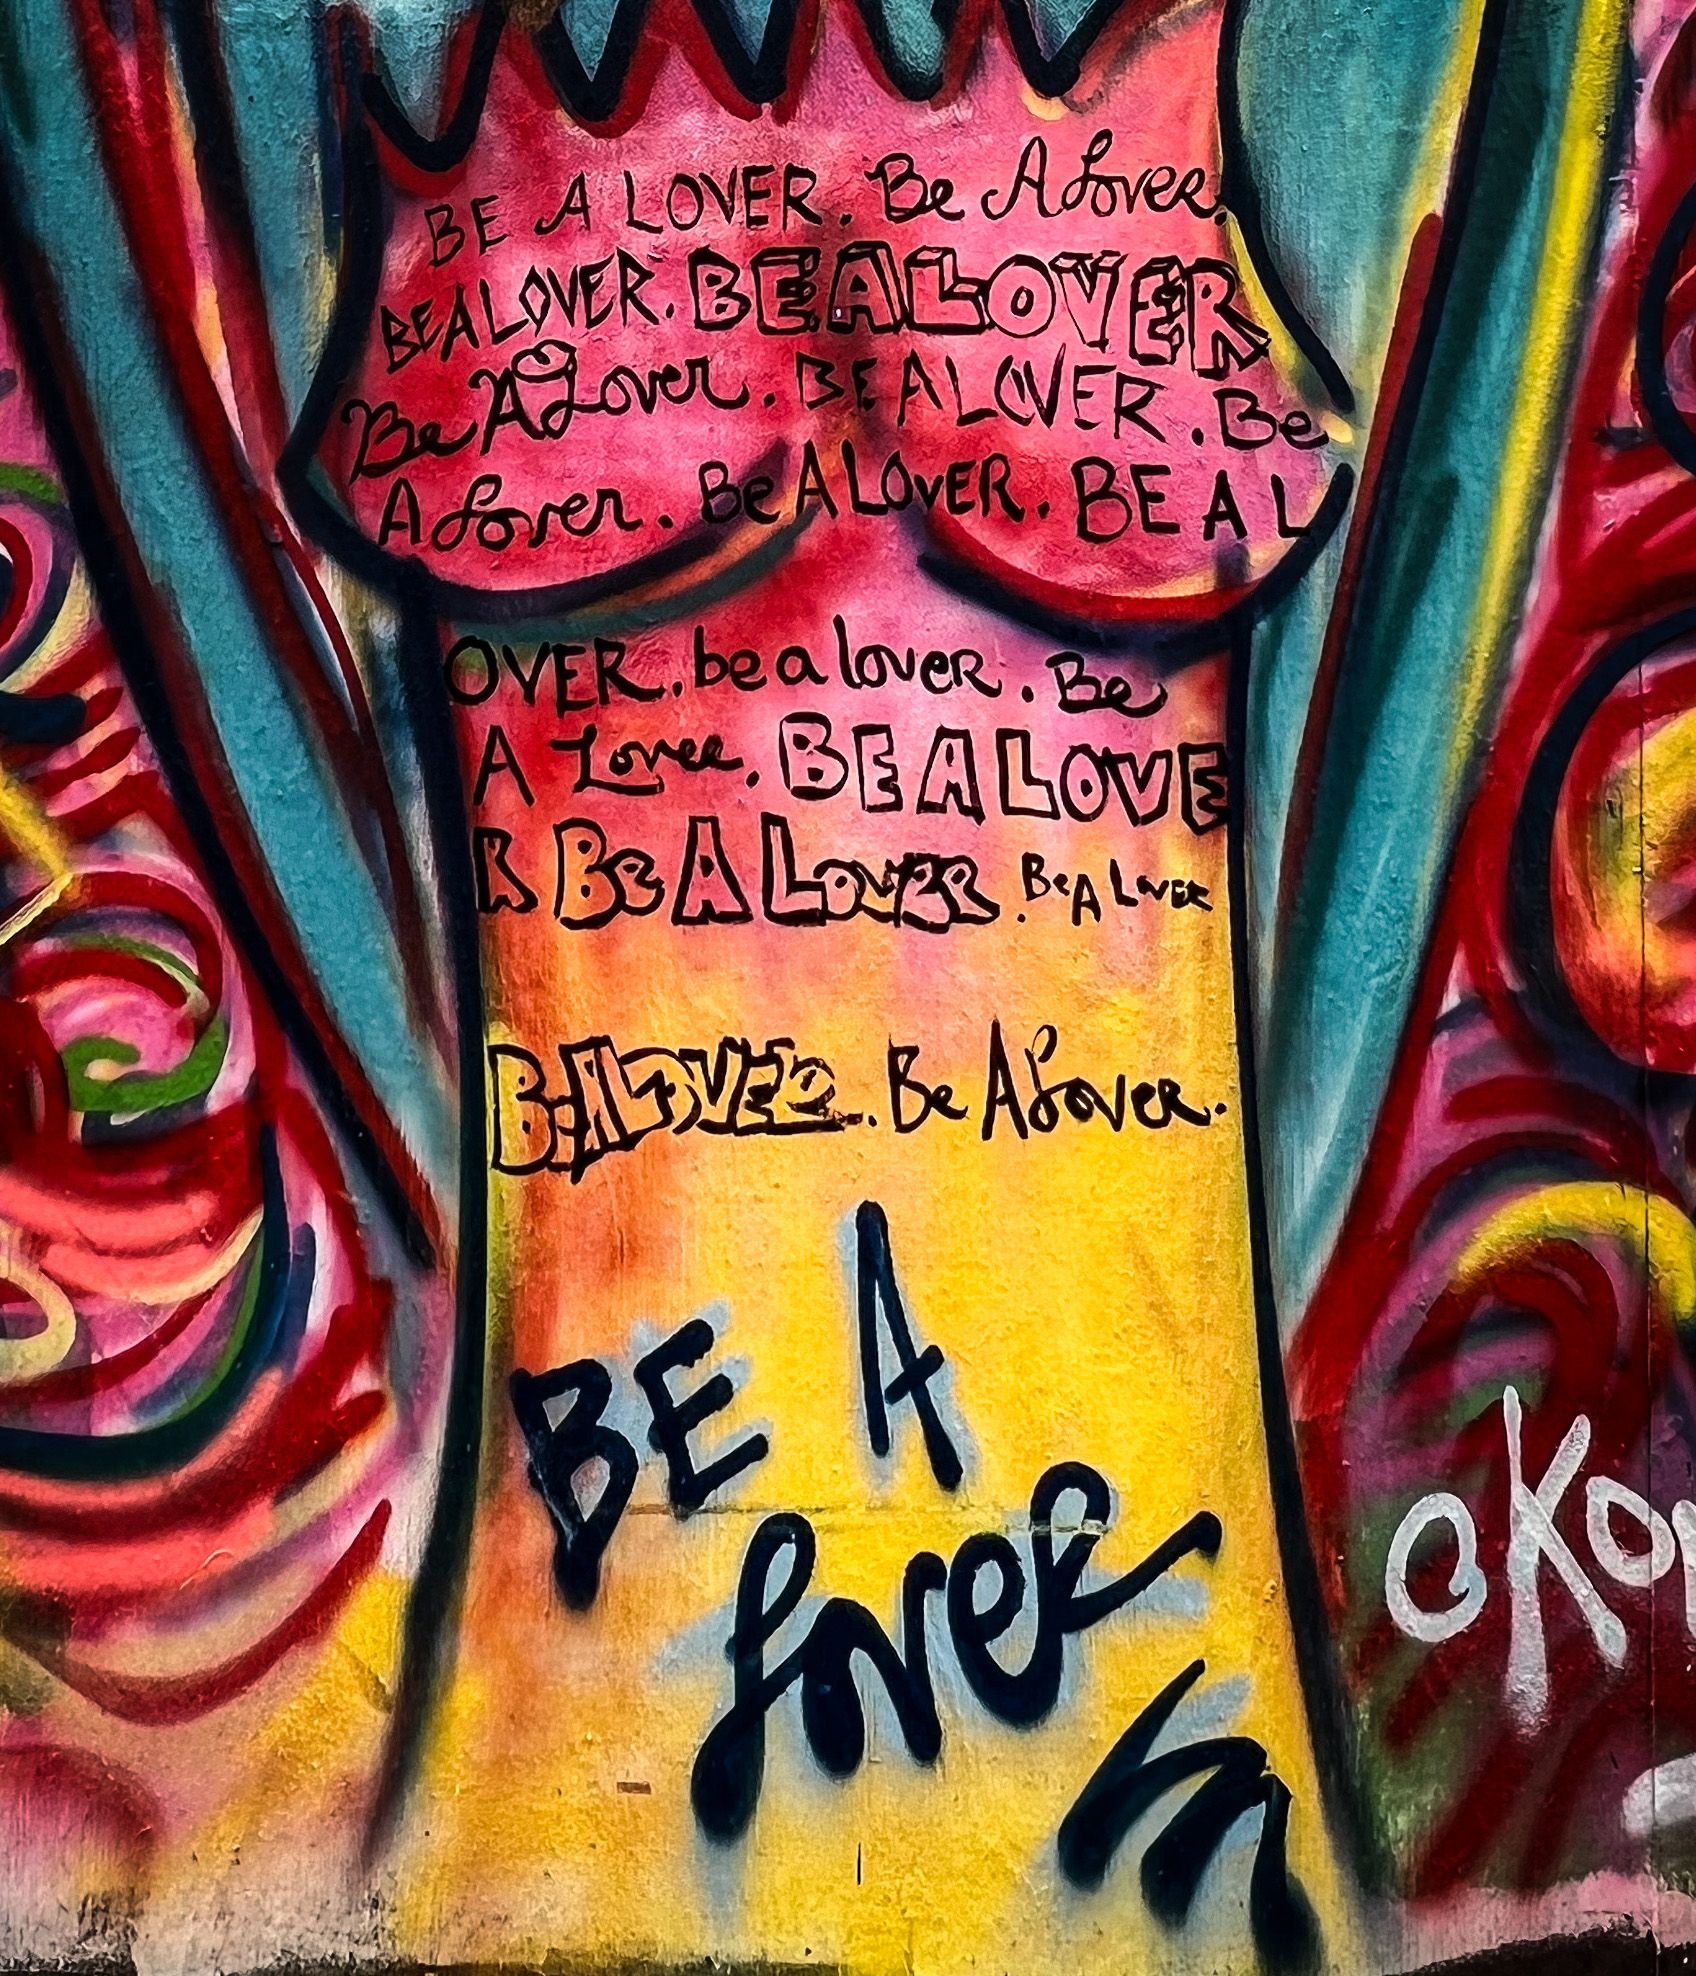 BE A LOVER. Be A Lover.
BE A LOVER. BE A LOVER
Be A Lover. BE A LOVER. Be
A Lover. Be A LOVER. BE A L
OVER. be a lover. Be
A Lover. BE A LOVE
R Be A LOVER. Be A LOVER
BE A LOVER. Be A Lover.
BE A
lover
OKO